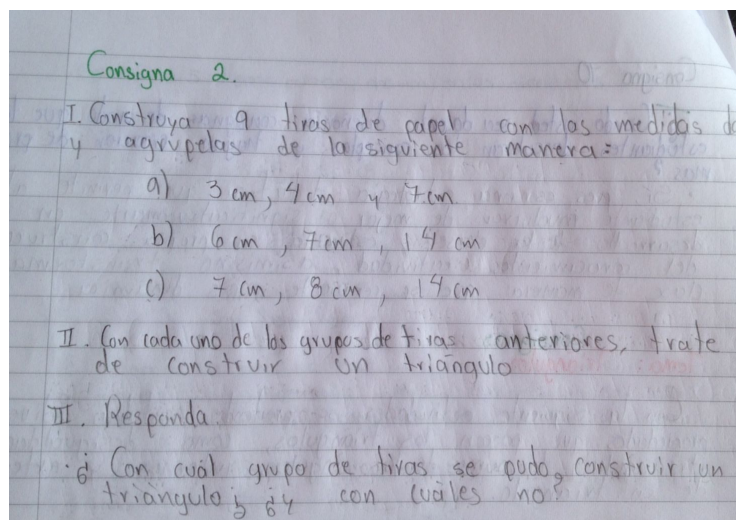 Consigna 2.
I. Construya 9 tiras de papel con las medidas da
y agrupelas de la siguiente manera:
a) 3 cm, 4cm y 7cm
b) 6cm, 7cm, 14 cm
c) 7 cm, 8 cm, 14 cm
II. Con cada uno de los grupos de tiras anteriores, trate
de construir un triángulo
III. Responda.
¿Con cuál grupo de tiras se pudo construir un
triángulo? ¿y con cuáles no?